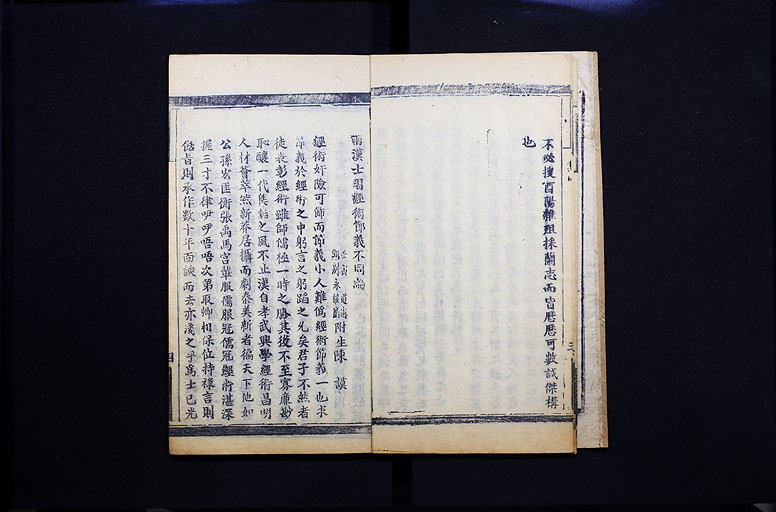 不必搜酉陽雜俎採蘭志而皆歷歷可數誠傑構
也
兩漢士習經術節義不同論
壬寅
甄別永
附生陳謨
經術奸險可飾而節義小人難僞經術節義一也求
節義於經術之中躬言之躬蹈之允矣君子不然者
徒表彰經術雖師儒極一時之勝其後不至寡廉尠
恥釀一代諂之風不止漢自孝武興學經術昌明
人材薈萃然新莽居攝而劇秦美新者徧天下他如
公孫宏匡衡張禹馬宮輩服儒服冠儒冠經術湛深
握三寸不律吚吚唔唔次第取卿相保位持祿言則
旨則承作數十年面諛而去亦淺之乎爲士已光